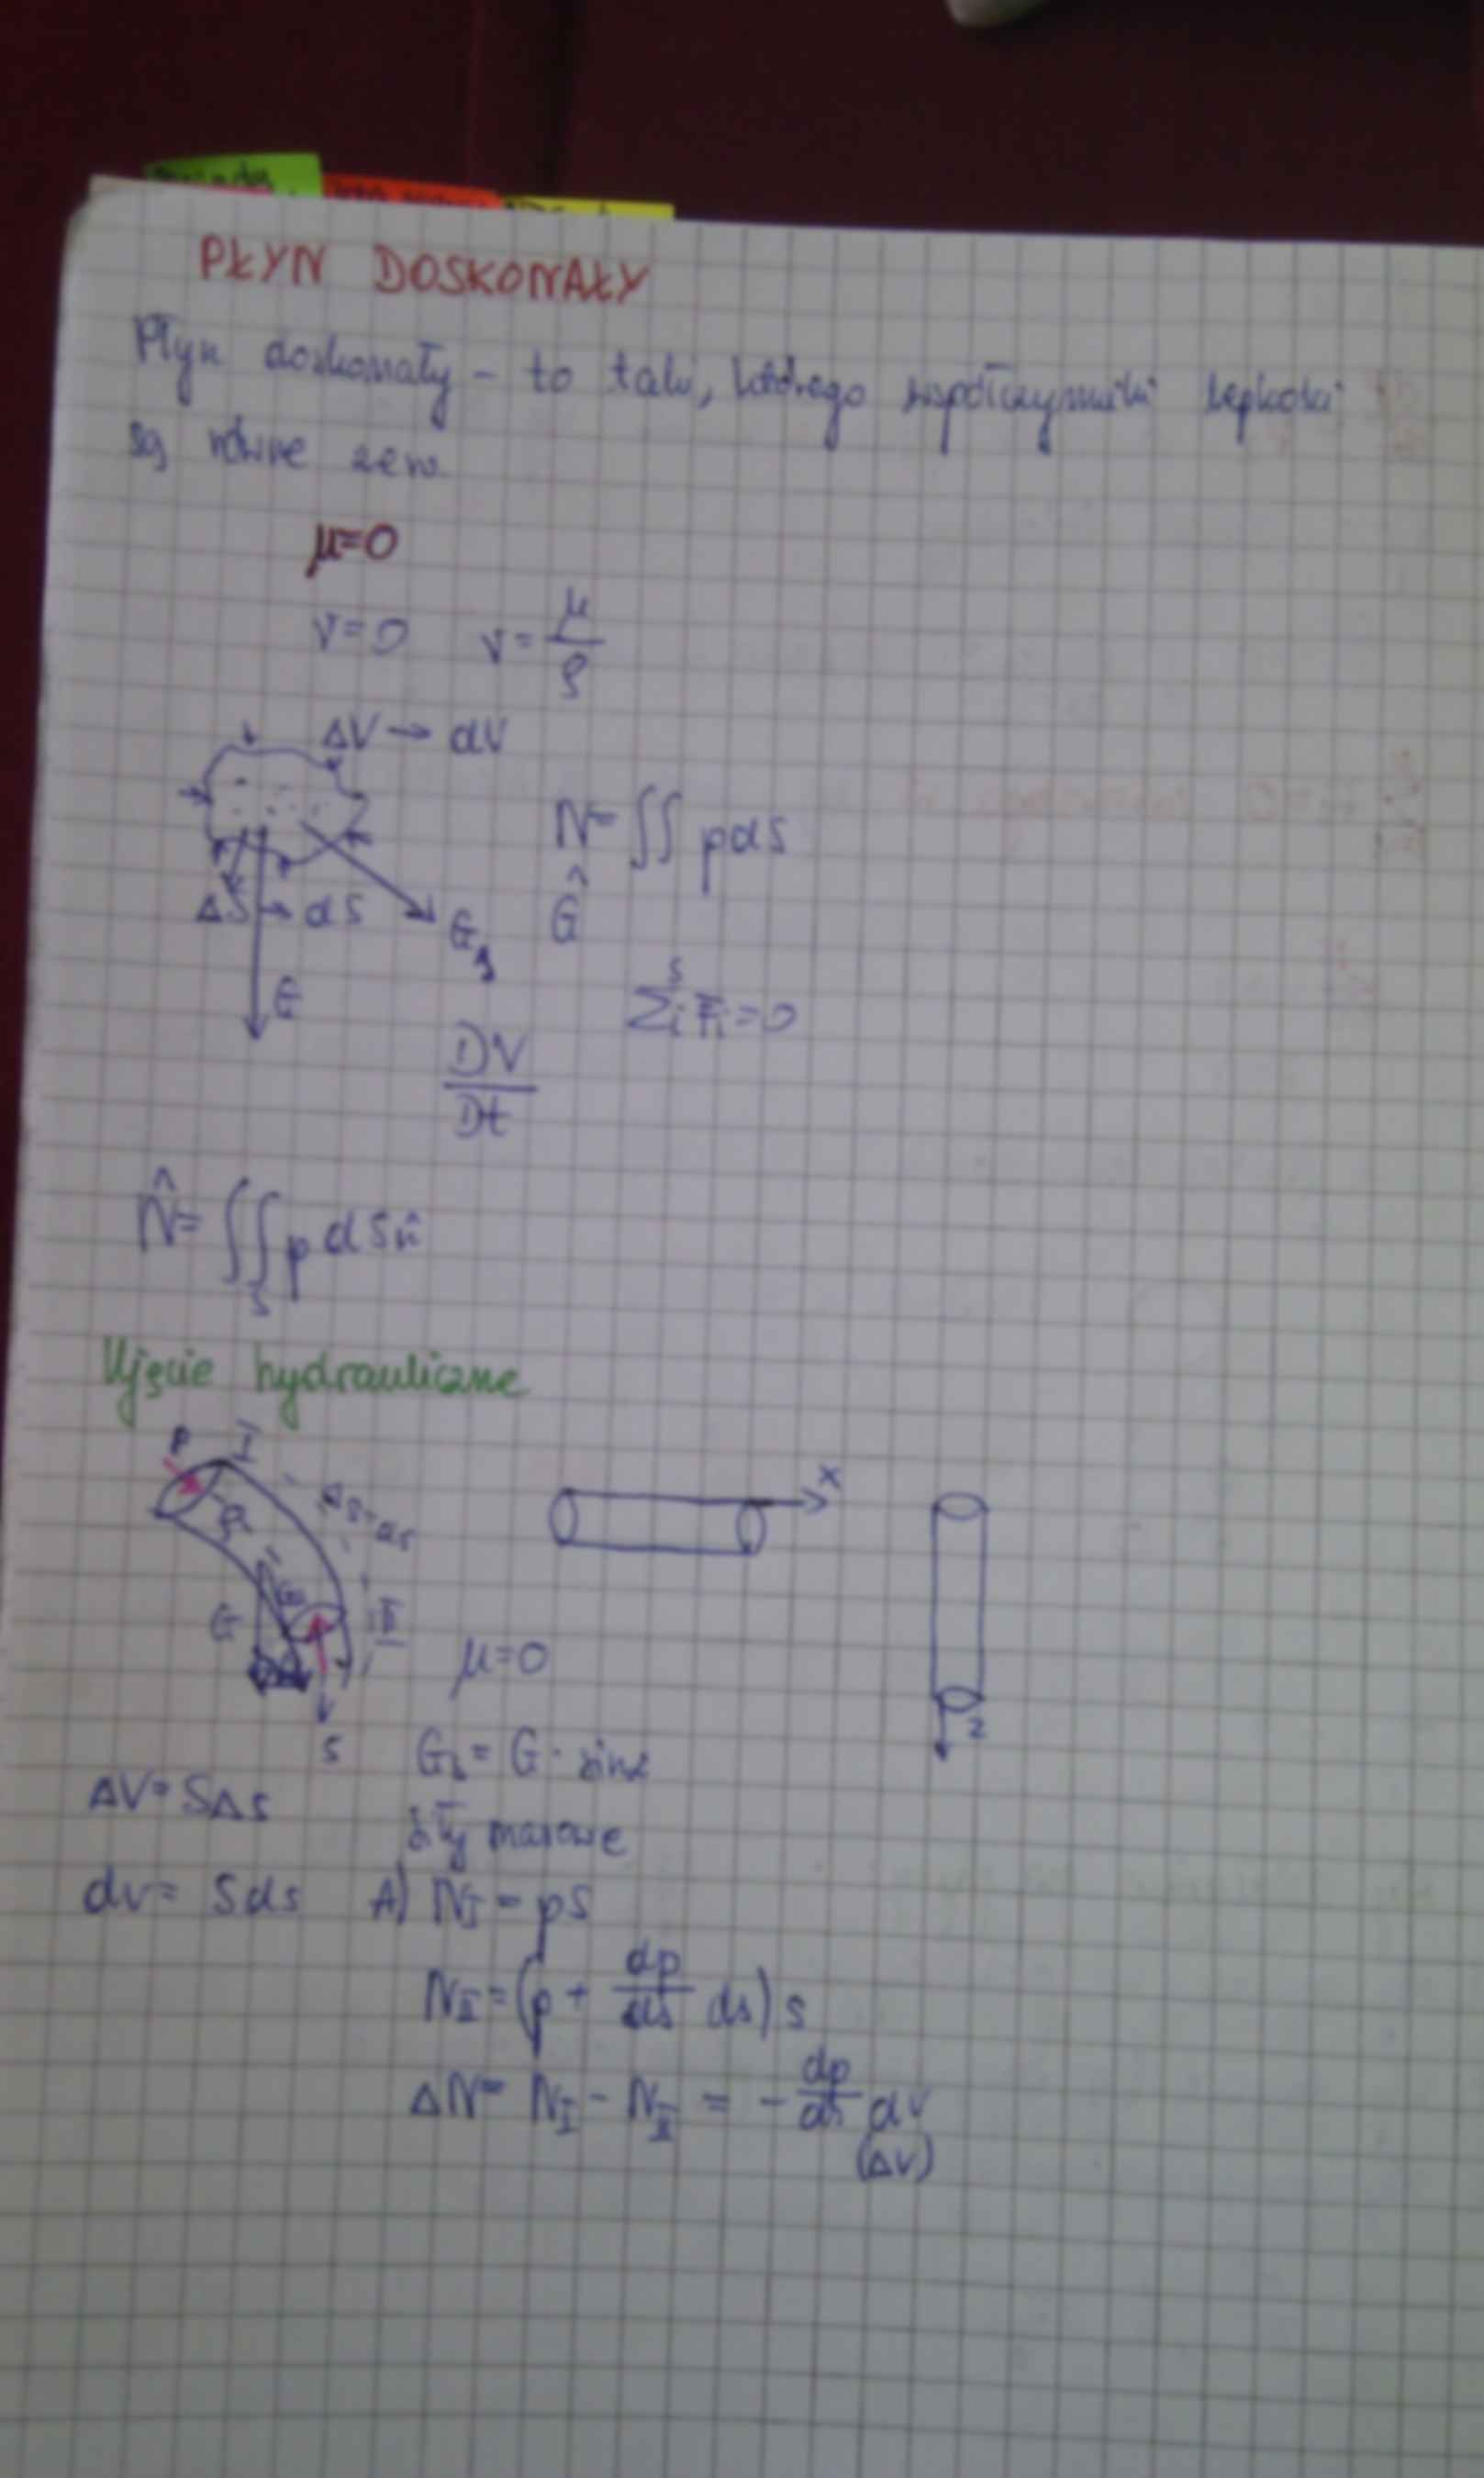 PŁYN DOSKONAŁY
Płyn doskonały - to taki, którego współczynniki lepkości
są równe zero
μ=0
ν=0 ν= μ/ρ
ΔV → dV
N= ∬ pdS
ΔS → dS
G
Ĝ
G
Σ Fi=0
DV/Dt
N̂= ∬ p dS n̂
S
Ujęcie hydrauliczne
P I
Δs=ds
x
G
II
μ=0
z
s
Gs = G · sinα
ΔV= SΔs
siły masowe
dv= Sds A) N_I = pS
N_II = (p + dp/ds ds) s
ΔN= N_I - N_II = - dp/ds dv
(ΔV)